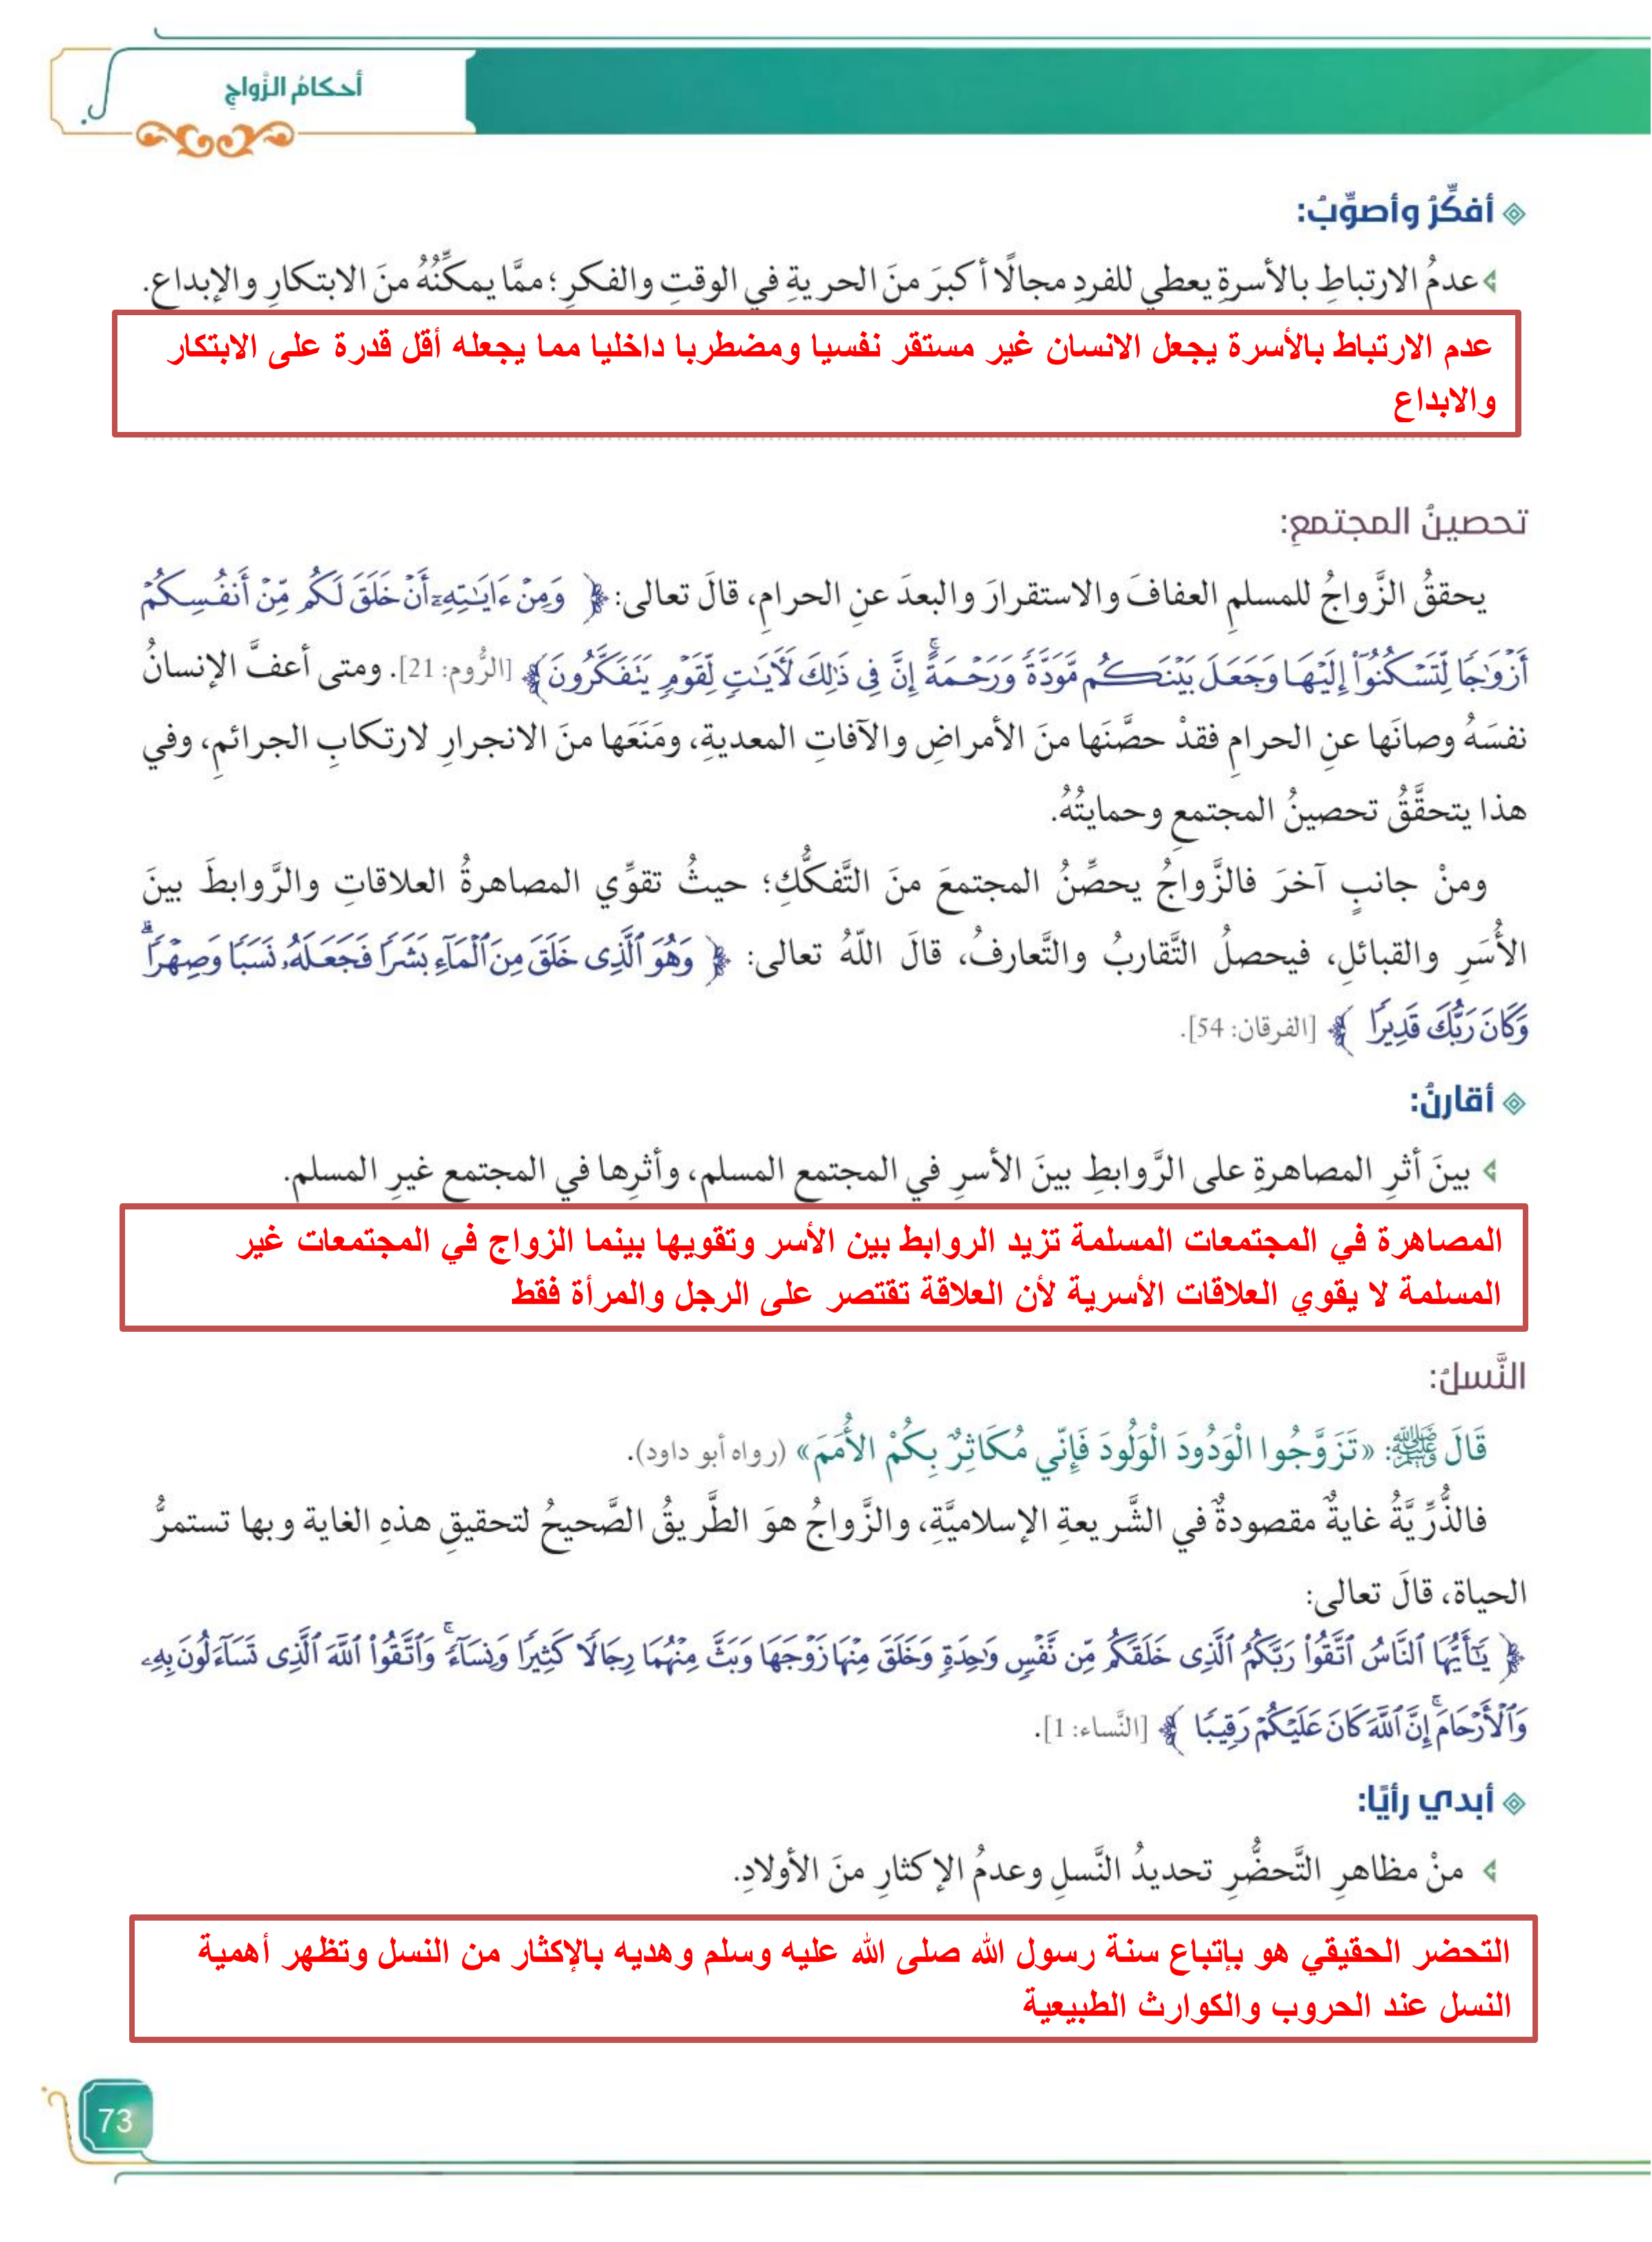 أحكامُ الزَّواجِ
أفكِّرُ وأصوِّبُ:
عدمُ الارتباطِ بالأسرةِ يعطي للفردِ مجالًا أكبرَ منَ الحريةِ في الوقتِ والفكرِ؛ ممَّا يمكِّنُهُ منَ الابتكارِ والإبداعِ.
عدم الارتباط بالأسرة يجعل الانسان غير مستقر نفسيا ومضطربا داخليا مما يجعله أقل قدرة على الابتكار
والابداع
تحصينُ المجتمعِ:
يحققُ الزَّواجُ للمسلمِ العفافَ والاستقرارَ والبعدَ عنِ الحرامِ، قالَ تعالى: ﴿ وَمِنْ ءَايَٰتِهِۦٓ أَنْ خَلَقَ لَكُم مِّنْ أَنفُسِكُمْ
أَزْوَٰجًا لِّتَسْكُنُوٓا۟ إِلَيْهَا وَجَعَلَ بَيْنَكُم مَّوَدَّةً وَرَحْمَةً ۚ إِنَّ فِى ذَٰلِكَ لَءَايَٰتٍ لِّقَوْمٍ يَتَفَكَّرُونَ ﴾ [الرُّوم: 21]. ومتى أعفَّ الإنسانُ
نفسَهُ وصانَها عنِ الحرامِ فقدْ حصَّنَها منَ الأمراضِ والآفاتِ المعديةِ، ومَنَعَها منَ الانجرارِ لارتكابِ الجرائمِ، وفي
هذا يتحقَّقُ تحصينُ المجتمعِ وحمايتُهُ.
ومنْ جانبٍ آخرَ فالزَّواجُ يحصِّنُ المجتمعَ منَ التَّفكُّكِ؛ حيثُ تقوِّي المصاهرةُ العلاقاتِ والرَّوابطَ بينَ
الأُسَرِ والقبائلِ، فيحصلُ التَّقاربُ والتَّعارفُ، قالَ اللّهُ تعالى: ﴿ وَهُوَ ٱلَّذِى خَلَقَ مِنَ ٱلْمَآءِ بَشَرًا فَجَعَلَهُۥ نَسَبًا وَصِهْرًا ۗ
وَكَانَ رَبُّكَ قَدِيرًا ﴾ [الفرقان: 54].
أقارنُ:
بينَ أثرِ المصاهرةِ على الرَّوابطِ بينَ الأسرِ في المجتمعِ المسلمِ، وأثرِها في المجتمعِ غيرِ المسلمِ.
المصاهرة في المجتمعات المسلمة تزيد الروابط بين الأسر وتقويها بينما الزواج في المجتمعات غير
المسلمة لا يقوي العلاقات الأسرية لأن العلاقة تقتصر على الرجل والمرأة فقط
النَّسلُ:
قَالَ ﷺ: «تَزَوَّجُوا الْوَدُودَ الْوَلُودَ فَإِنِّي مُكَاثِرٌ بِكُمْ الأُمَمَ» (رواه أبو داود).
فالذُّرِّيَّةُ غايةٌ مقصودةٌ في الشَّريعةِ الإسلاميَّةِ، والزَّواجُ هوَ الطَّريقُ الصَّحيحُ لتحقيقِ هذهِ الغاية وبها تستمرُّ
الحياة، قالَ تعالى:
﴿ يَٰٓأَيُّهَا ٱلنَّاسُ ٱتَّقُوا۟ رَبَّكُمُ ٱلَّذِى خَلَقَكُم مِّن نَّفْسٍ وَٰحِدَةٍ وَخَلَقَ مِنْهَا زَوْجَهَا وَبَثَّ مِنْهُمَا رِجَالًا كَثِيرًا وَنِسَآءً ۚ وَٱتَّقُوا۟ ٱللَّهَ ٱلَّذِى تَسَآءَلُونَ بِهِۦ
وَٱلْأَرْحَامَ ۚ إِنَّ ٱللَّهَ كَانَ عَلَيْكُمْ رَقِيبًا ﴾ [النَّساء: 1].
أبدي رأيًا:
منْ مظاهرِ التَّحضُّرِ تحديدُ النَّسلِ وعدمُ الإكثارِ منَ الأولادِ.
التحضر الحقيقي هو بإتباع سنة رسول الله صلى الله عليه وسلم وهديه بالإكثار من النسل وتظهر أهمية
النسل عند الحروب والكوارث الطبيعية
73